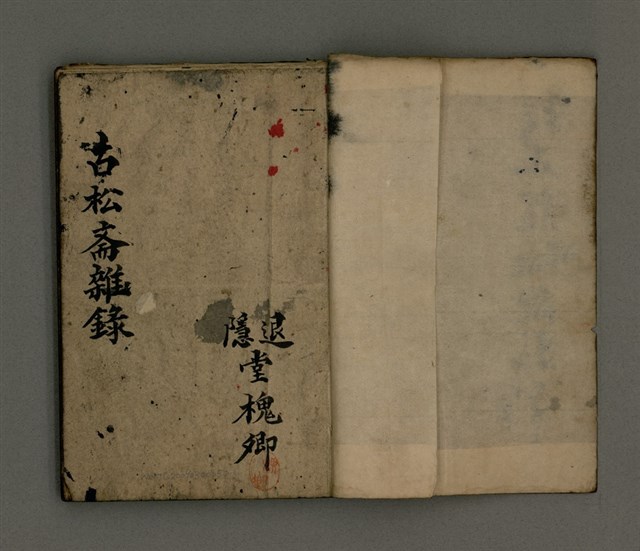 古松斎雜錄
退隱堂槐卿